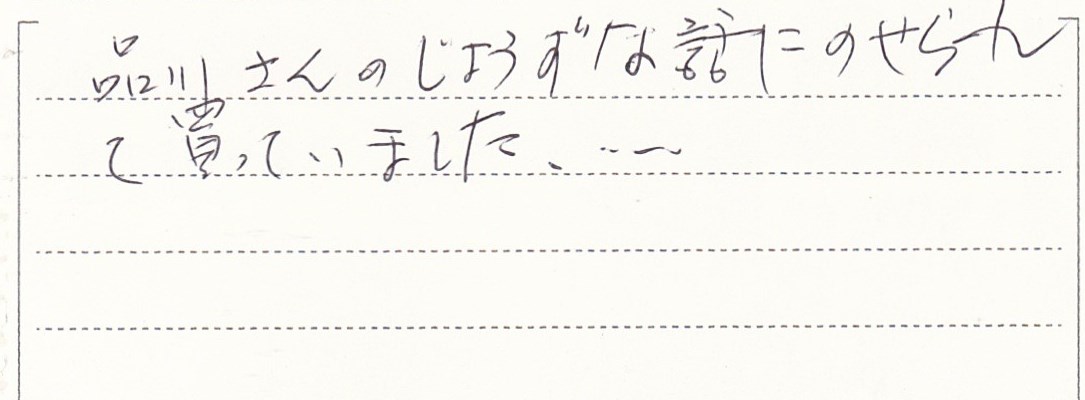 品川さんのじょうずな話にのせられ
て買っていました、……